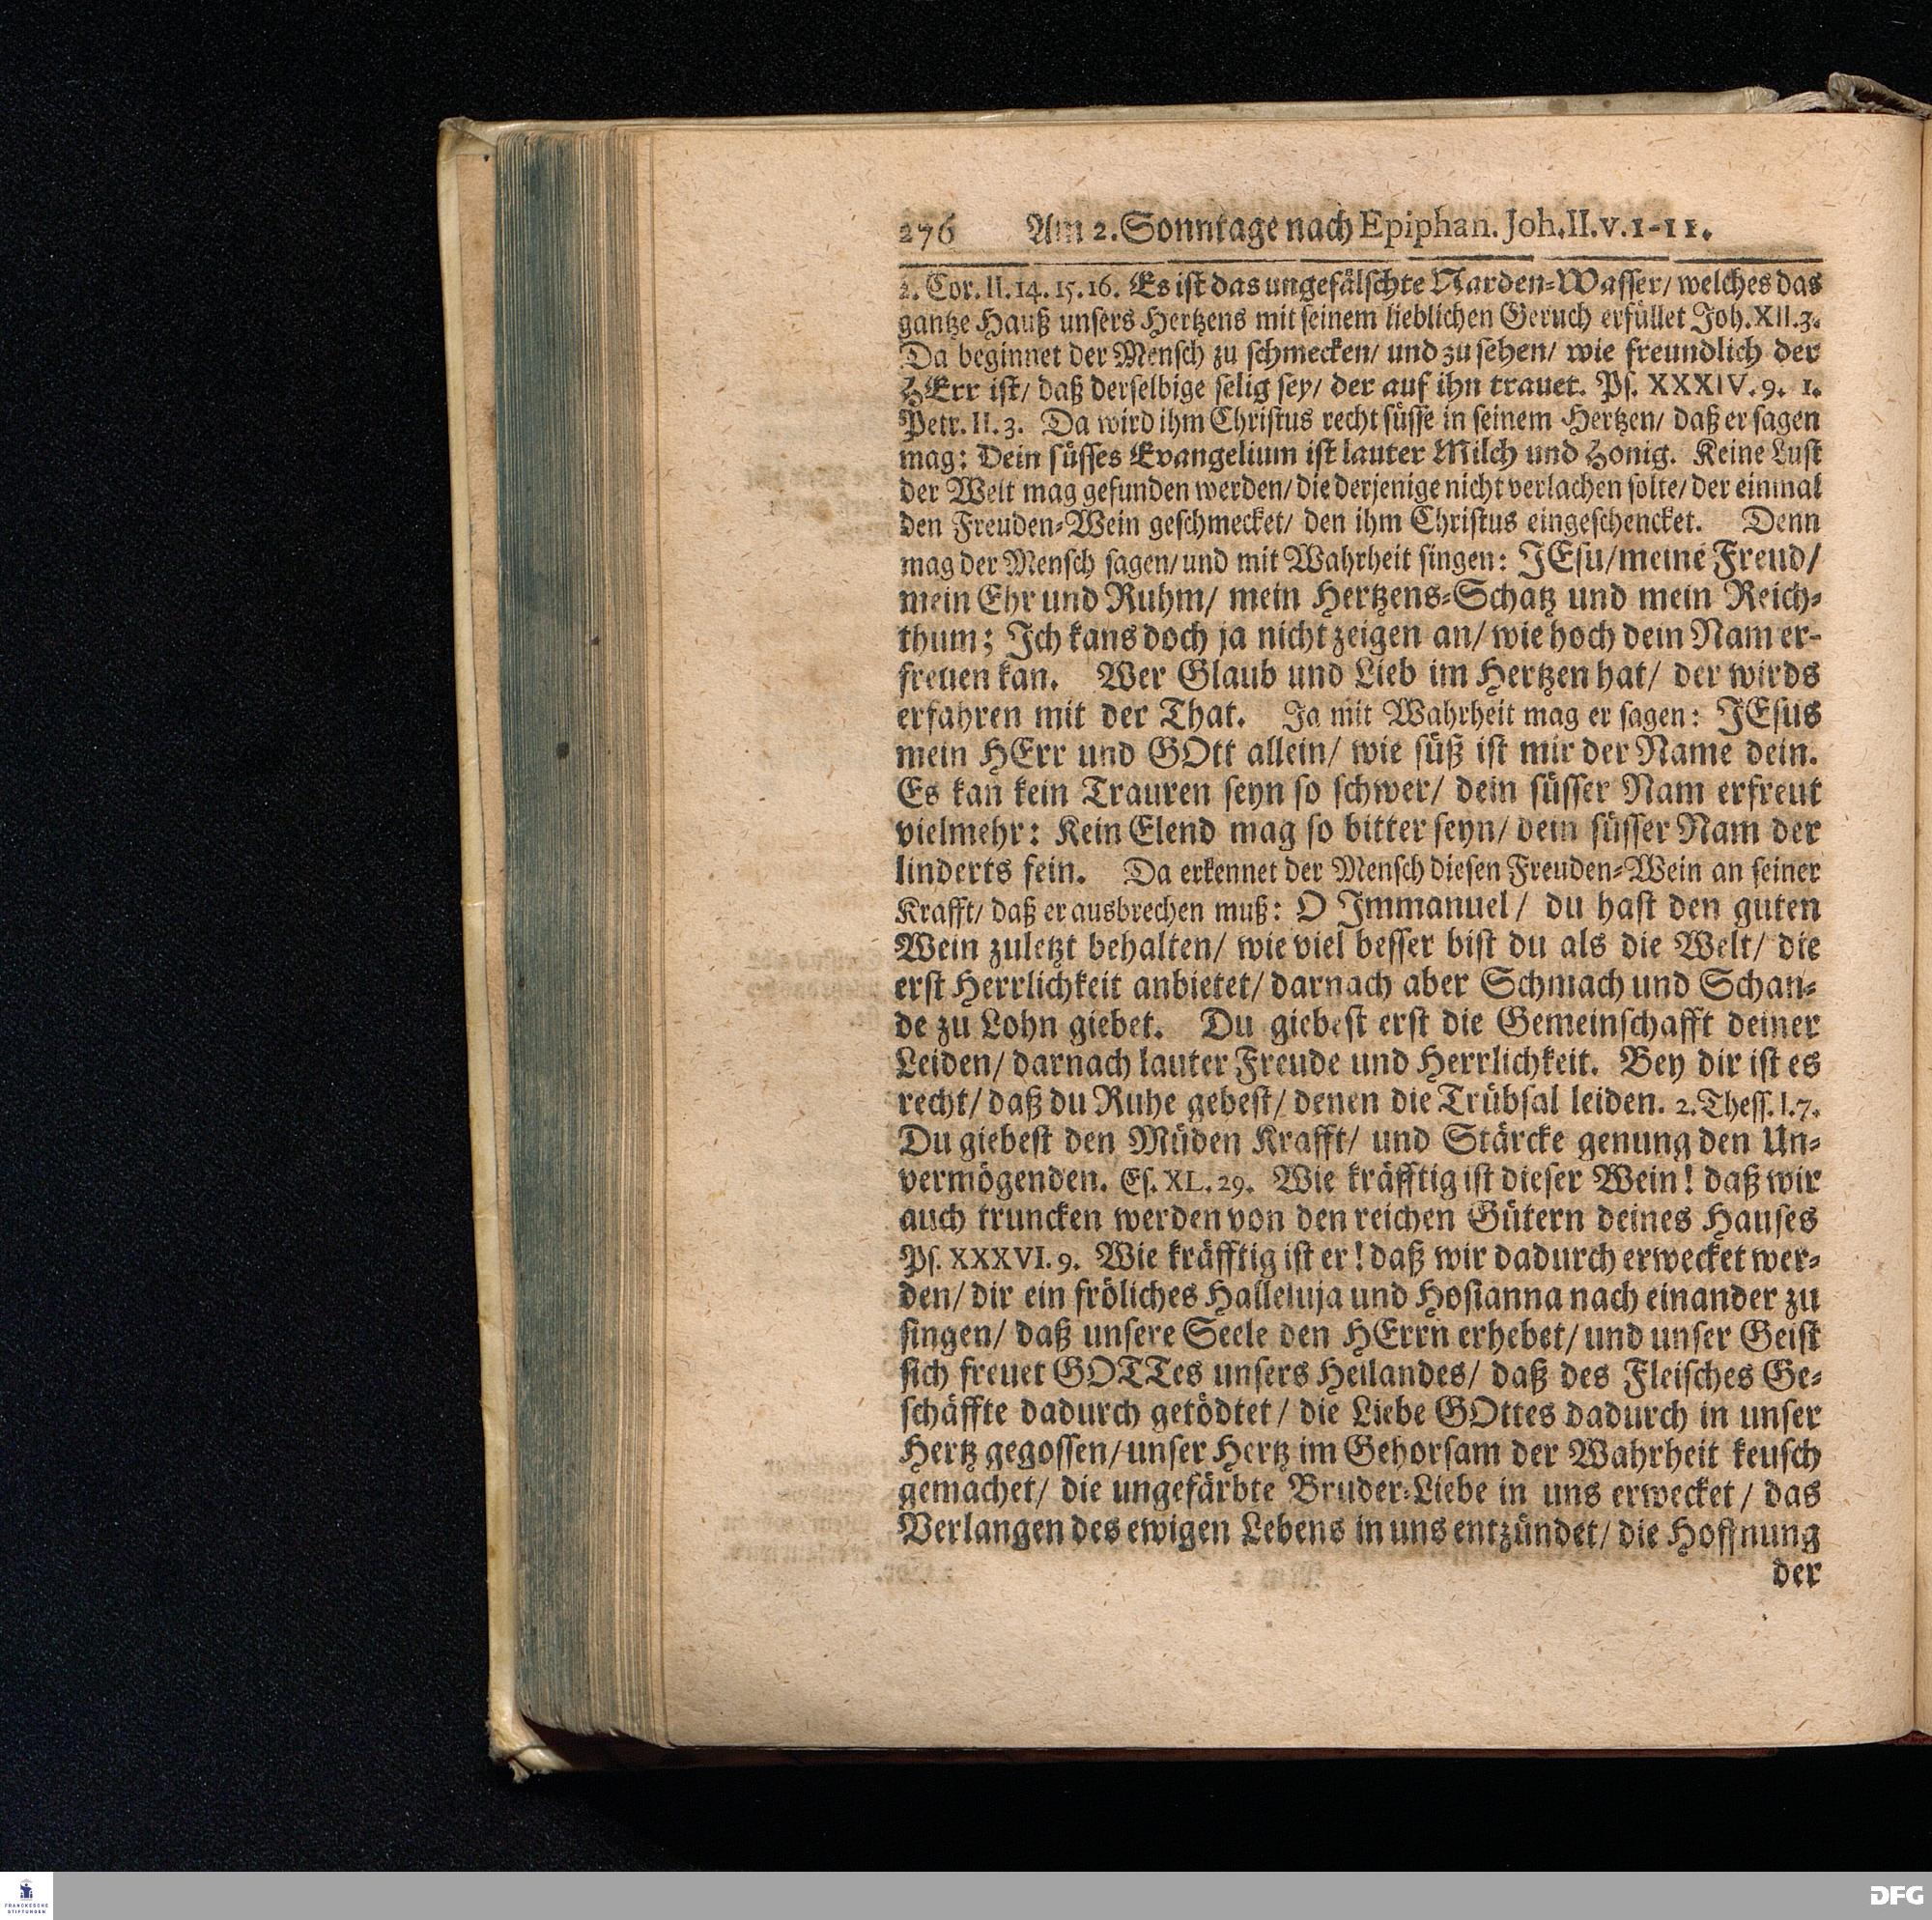 276 Am 2. Sonntage nach Epiphan. Joh. II. v. 1-11.
2. Cor. II. 14. 15. 16. Es ist das ungefälschte Narden-Wasser/ welches das
gantze Hauß unsers Hertzens mit seinem lieblichen Geruch erfüllet Joh. XII. 3.
Da beginnet der Mensch zu schmecken/ und zu sehen/ wie freundlich der
HErr ist/ daß derselbige selig sey/ der auf ihn trauet. Ps. XXXIV. 9. 1.
Petr. II. 3. Da wird ihm Christus recht süsse in seinem Hertzen/ daß er sagen
mag: Dein süsses Evangelium ist lauter Milch und Honig. Keine Lust
der Welt mag gefunden werden/ die derjenige nicht verlachen solte/ der einmal
den Freuden-Wein geschmecket/ den ihm Christus eingeschencket. Denn
mag der Mensch sagen/ und mit Wahrheit singen: JEsu/ meine Freud/
mein Ehr und Ruhm/ mein Hertzens-Schatz und mein Reich-
thum; Ich kans doch ja nicht zeigen an/ wie hoch dein Nam er-
freuen kan. Wer Glaub und Lieb im Hertzen hat/ der wirds
erfahren mit der That. Ja mit Wahrheit mag er sagen: JEsus
mein HErr und GOtt allein/ wie süß ist mir der Name dein.
Es kan kein Trauren seyn so schwer/ dein süsser Nam erfreut
vielmehr: Kein Elend mag so bitter seyn/ dein süsser Nam der
linderts fein. Da erkennet der Mensch diesen Freuden-Wein an seiner
Krafft/ daß er ausbrechen muß: O Immanuel/ du hast den guten
Wein zuletzt behalten/ wie viel besser bist du als die Welt/ die
erst Herrlichkeit anbietet/ darnach aber Schmach und Schan-
de zu Lohn giebet. Du giebest erst die Gemeinschafft deiner
Leiden/ darnach lauter Freude und Herrlichkeit. Bey dir ist es
recht/ daß du Ruhe gebest/ denen die Trübsal leiden. 2. Thess. I. 7.
Du giebest den Müden Krafft/ und Stärcke genung den Un-
vermögenden. Es. XL. 29. Wie kräfftig ist dieser Wein! daß wir
auch truncken werden von den reichen Gütern deines Hauses
Ps. XXXVI. 9. Wie kräfftig ist er! daß wir dadurch erwecket wer-
den/ dir ein fröliches Halleluja und Hosianna nach einander zu
singen/ daß unsere Seele den HErrn erhebet/ und unser Geist
sich freuet GOTTes unsers Heilandes/ daß des Fleisches Ge-
schäffte dadurch getödtet/ die Liebe GOttes dadurch in unser
Hertz gegossen/ unser Hertz im Gehorsam der Wahrheit keusch
gemachet/ die ungefärbte Bruder-Liebe in uns erwecket/ das
Verlangen des ewigen Lebens in uns entzündet/ die Hoffnung
der
FRANCKESCHE
STIFTUNGEN
DFG